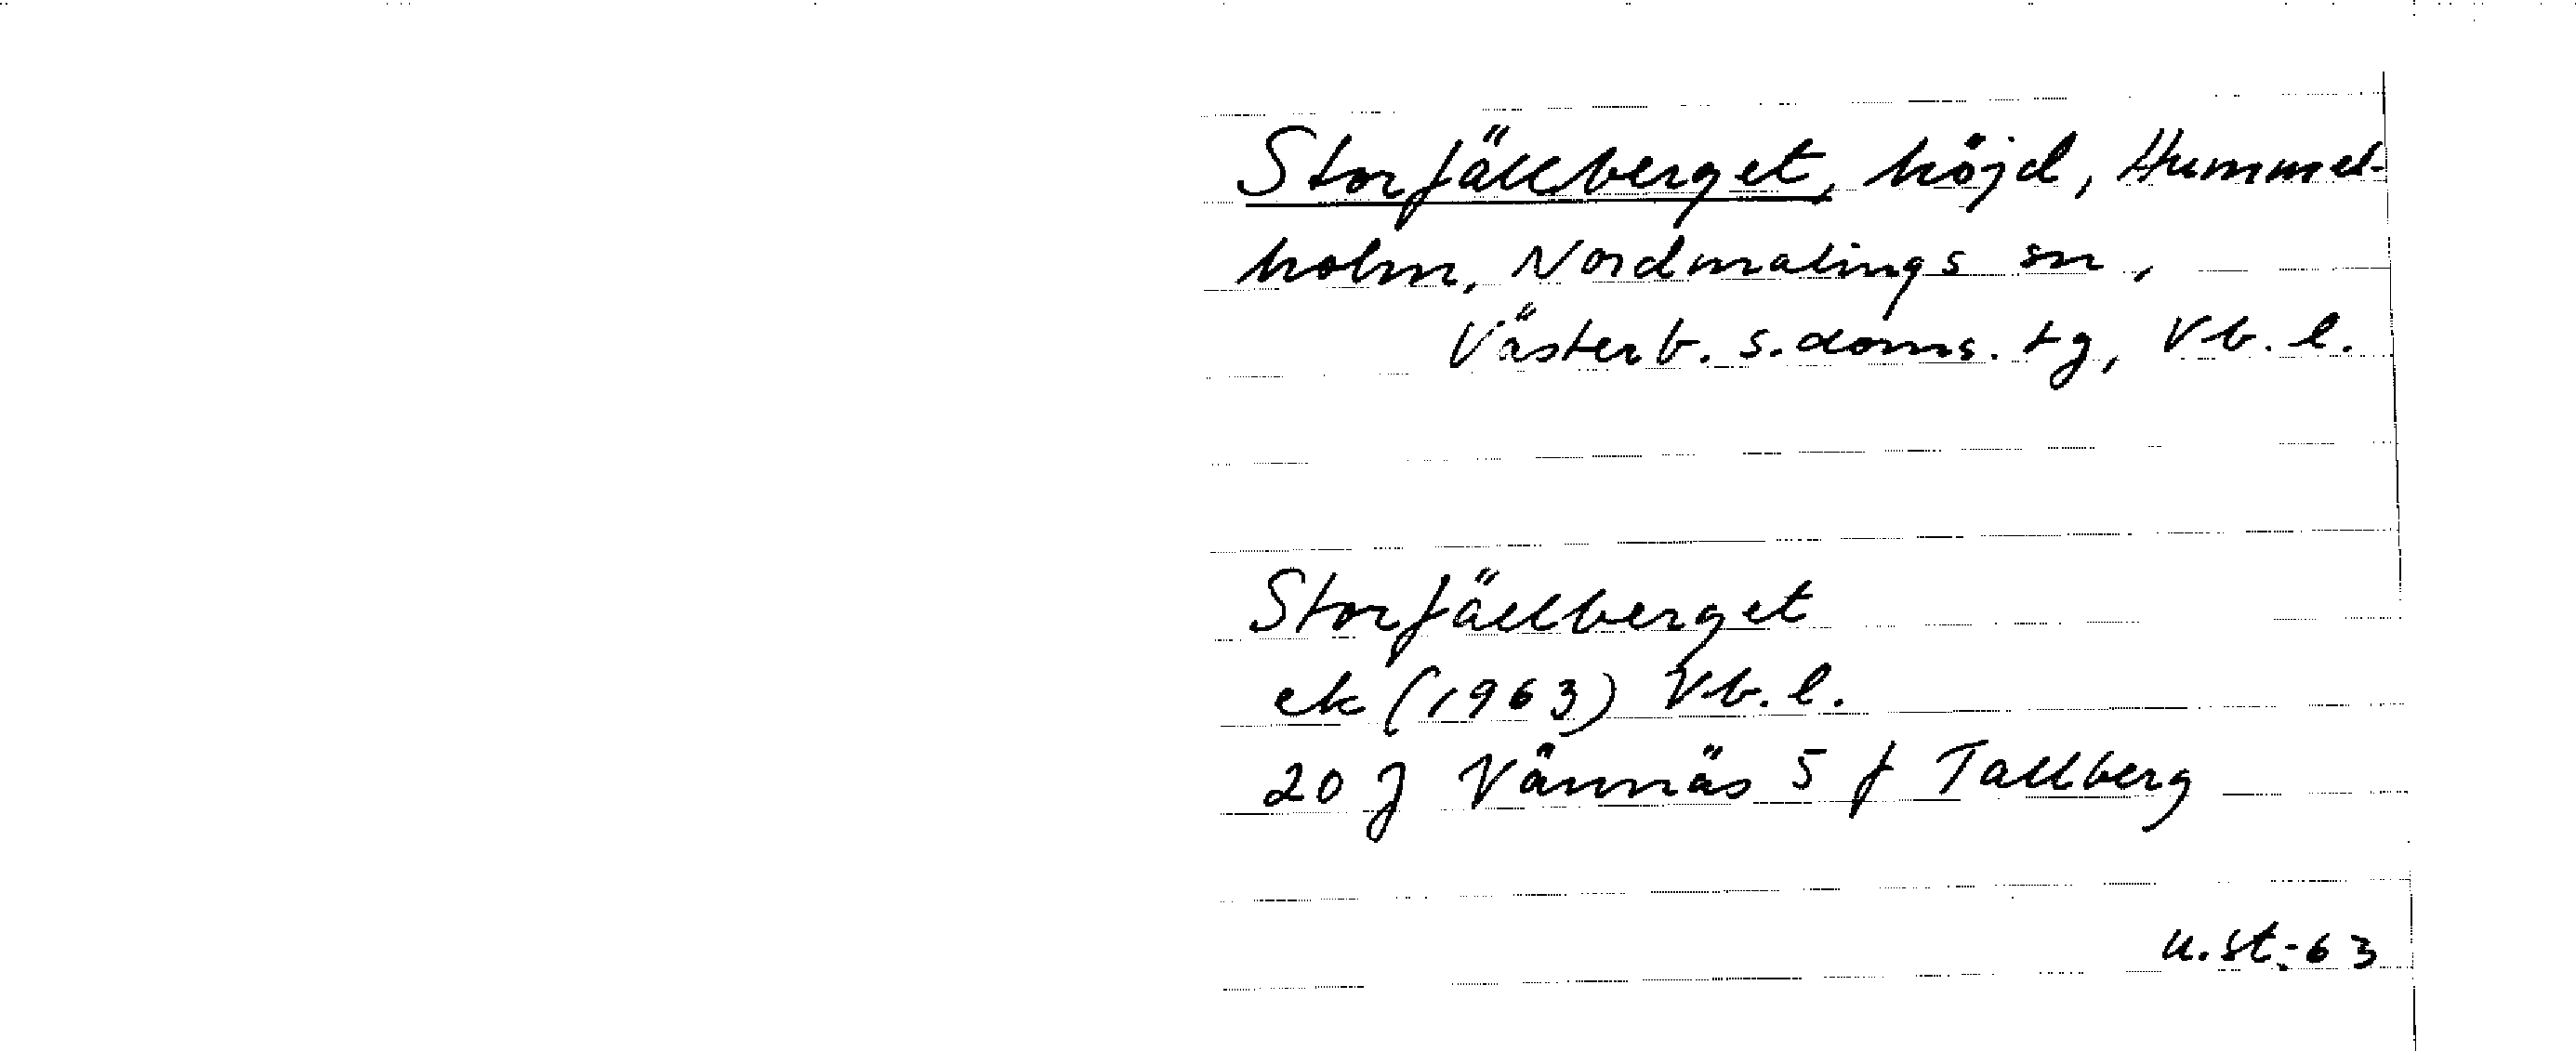 Storfällberget, höjd, Hummel-
holm, Nordmalings sn,
Västerb. s. doms. tg, Vb. l.
Storfällberget
ek (1963) Vb. l.
20 J Vännäs 5 f Tallberg
u.st.-63